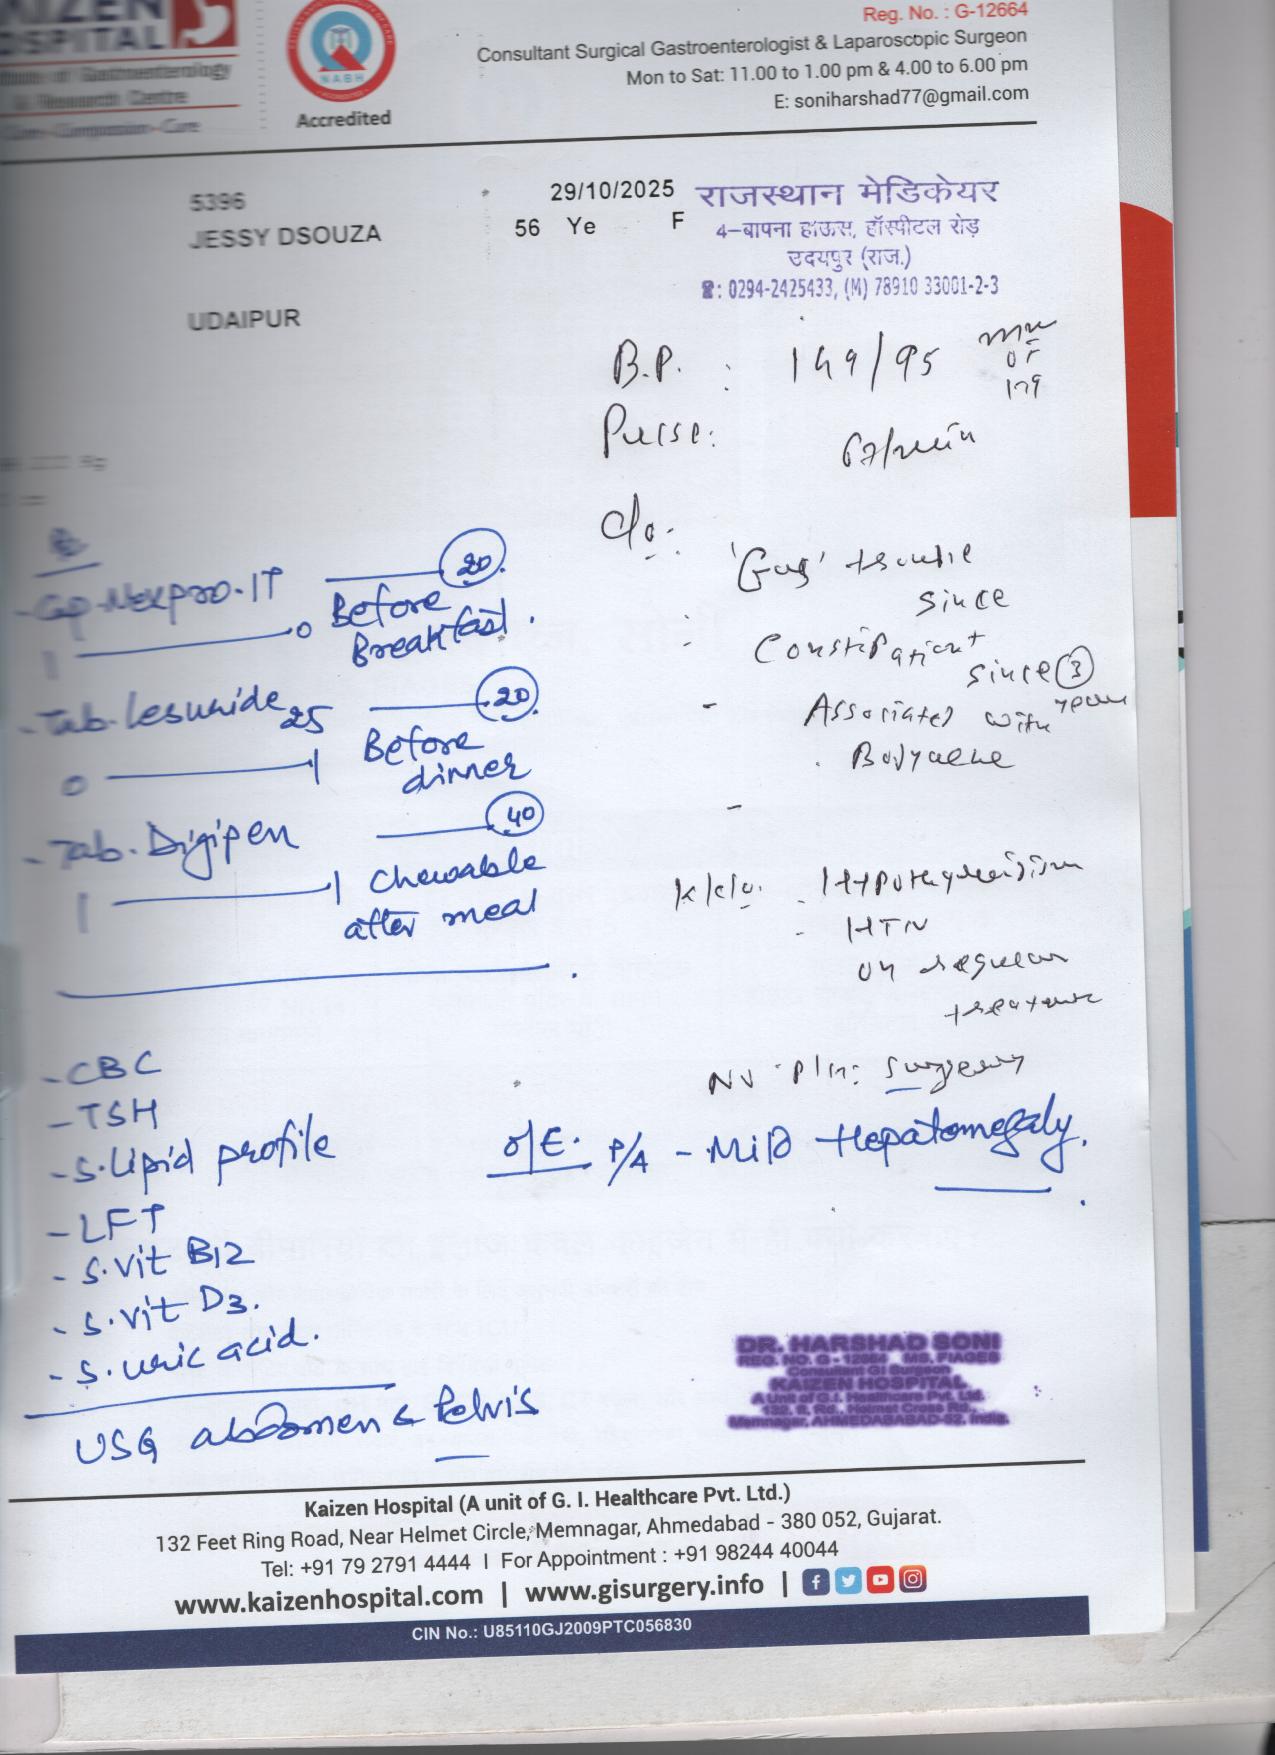 KAIZEN
HOSPITAL
Institute of Gastroenterology
& Research Centre
Care-Compassion-Cure
NABH
Accredited
Reg. No. : G-12664
Consultant Surgical Gastroenterologist & Laparoscopic Surgeon
Mon to Sat: 11.00 to 1.00 pm & 4.00 to 6.00 pm
E: soniharshad77@gmail.com
5396
29/10/2025
JESSY DSOUZA
56 Ye F
UDAIPUR
राजस्थान मेडिकेयर
4–बापना हाऊस, हॉस्पीटल रोड़
उदयपुर (राज.)
☎: 0294-2425433, (M) 78910 33001-2-3
B.P. : 149/95 mm
of
Hg
Pulse: 67/min
c/o:
'Gas' trouble
since
- Constipation+
since ③
years
- Associated with
Bodyache
-
k/c/o. - Hypothyroidism
- HTN
on regular
treatment
No P/H: Surgery
O/E. P/A - Mild Hepatomegaly.
Rx
- Cap. Nexpro-IT 20.
1 0 Before
Breakfast.
- Tab. Lesuride 25 20.
0 1 Before
dinner
- Tab. Digipen 40
1 1 Chewable
after meal
- CBC
- TSH
- S. Lipid profile
- LFT
- S. Vit B12
- S. Vit D3.
- S. uric acid.
USG abdomen & Pelvis
DR. HARSHAD SONI
REG. NO. G - 12664 MS, FIAGES
Consultant GI Surgeon
KAIZEN HOSPITAL
A Unit of G.I. Healthcare Pvt. Ltd.
132, ft. Rd., Helmet Cross Rd.,
Memnagar, AHMEDABABAD-52. India.
Kaizen Hospital (A unit of G. I. Healthcare Pvt. Ltd.)
132 Feet Ring Road, Near Helmet Circle, Memnagar, Ahmedabad - 380 052, Gujarat.
Tel: +91 79 2791 4444 I For Appointment : +91 98244 40044
www.kaizenhospital.com | www.gisurgery.info |
CIN No.: U85110GJ2009PTC056830